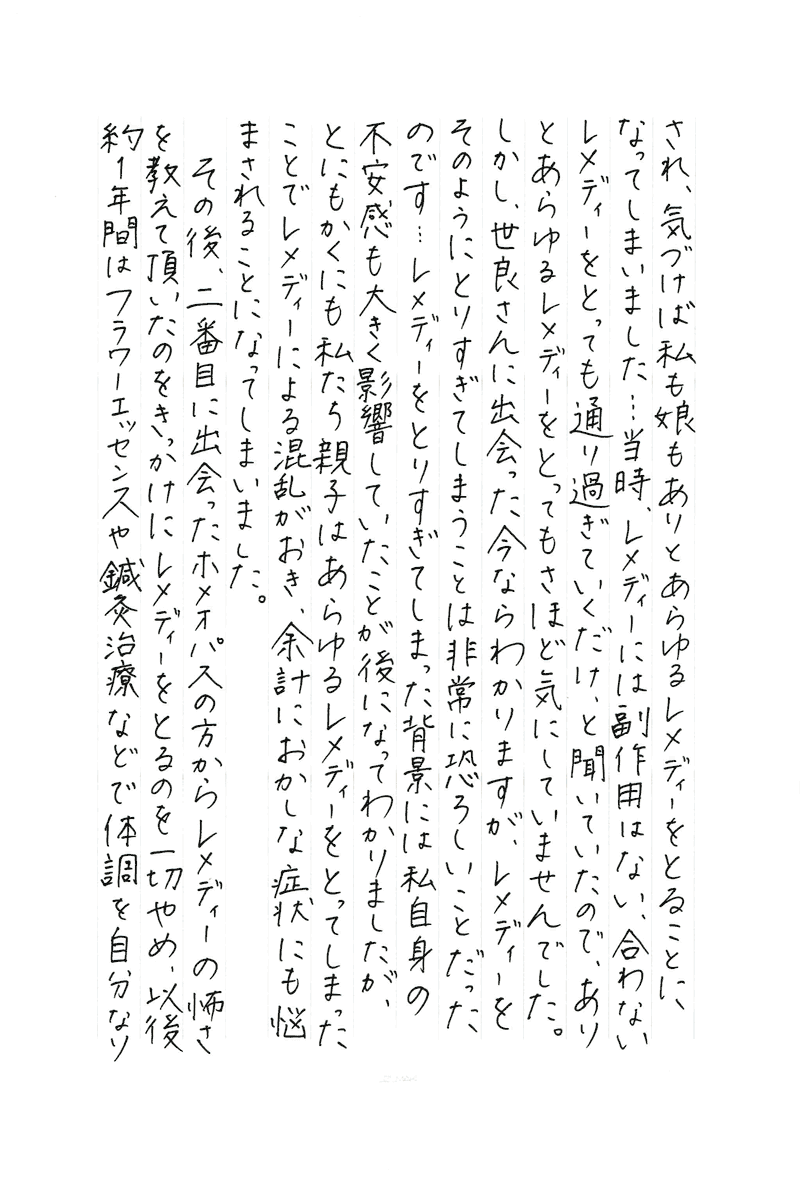 され、気づけば私も娘もありとあらゆるレメディーをとることに
なってしまいました…当時、レメディーには副作用はない、合わない
レメディーをとっても通り過ぎていくだけ、と聞いていたので、あり
とあらゆるレメディーをとってもさほど気にしていませんでした。
しかし、世良さんに出会った今ならわかりますが、レメディーを
そのようにとりすぎてしまうことは非常に恐ろしいことだった
のです…レメディーをとりすぎてしまった背景には私自身の
不安感も大きく影響していたことが後になってわかりましたが、
とにもかくにも私たち親子はあらゆるレメディーをとってしまった
ことでレメディーによる混乱がおき、余計におかしな症状にも悩
まされることになってしまいました。
その後、二番目に出会ったホメオパスの方からレメディーの怖さ
を教えて頂いたのをきっかけにレメディーをとるのを一切やめ、以後
約1年間はフラワーエッセンスや鍼灸治療などで体調を自分なり